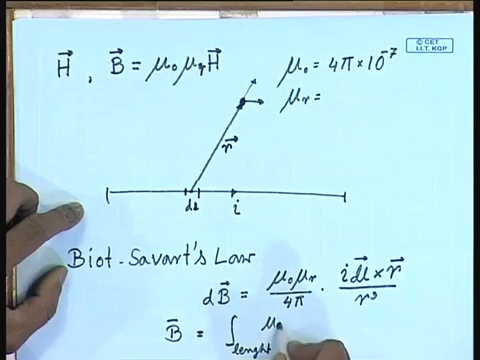 © CET
I.I.T. KGP
H⃗ , B⃗ = μ₀ μᵣ H⃗
μ₀ = 4π × 10⁻⁷
μᵣ =
r⃗
dl
i
Biot-Savart's Law
dB⃗ = μ₀μᵣ/4π · i dl⃗ × r⃗ / r³
B̄ = ∫lenght μ₀